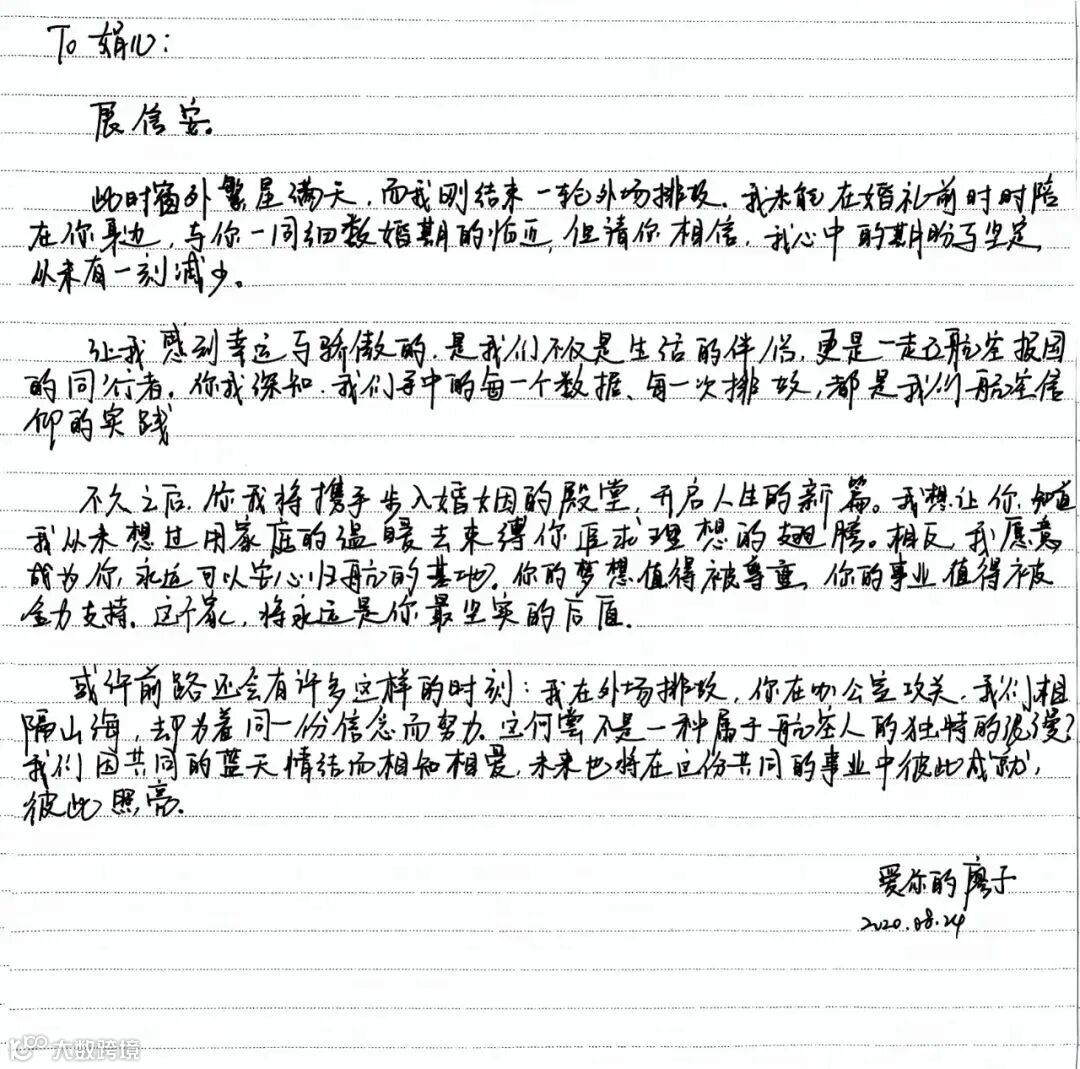 To 娟儿:
展信安。
此时窗外繁星满天,而我刚结束一轮外场排故。我未能在婚礼前时时陪
在你身边,与你一同细数婚期的临近,但请你相信,我心中的期盼与坚定,
从未有一刻减少。
让我感到幸运与骄傲的,是我们不仅是生活的伴侣,更是一走航空报国
的同行者。你我深知,我们手中的每一个数据、每一次排故,都是我们航空信
仰的实践
不久之后,你我将携手步入婚姻的殿堂,开启人生的新篇。我想让你知道
我从未想过用家庭的温暖去束缚你追求理想的翅膀。相反,我愿意
成为你永远可以安心归航的基地。你的梦想值得被尊重,你的事业值得被
全力支持。这个家,将永远是你最坚实的后盾。
或许前路还会有许多这样的时刻:我在外场排故,你在办公室攻关,我们相
隔山海,却为着同一份信念而努力。这何尝不是一种属于航空人的独特的浪漫?
我们因共同的蓝天情结而相知相爱,未来也将在这份共同的事业中彼此成就,
彼此照亮。
爱你的廖子
2020.08.24
大数跨境